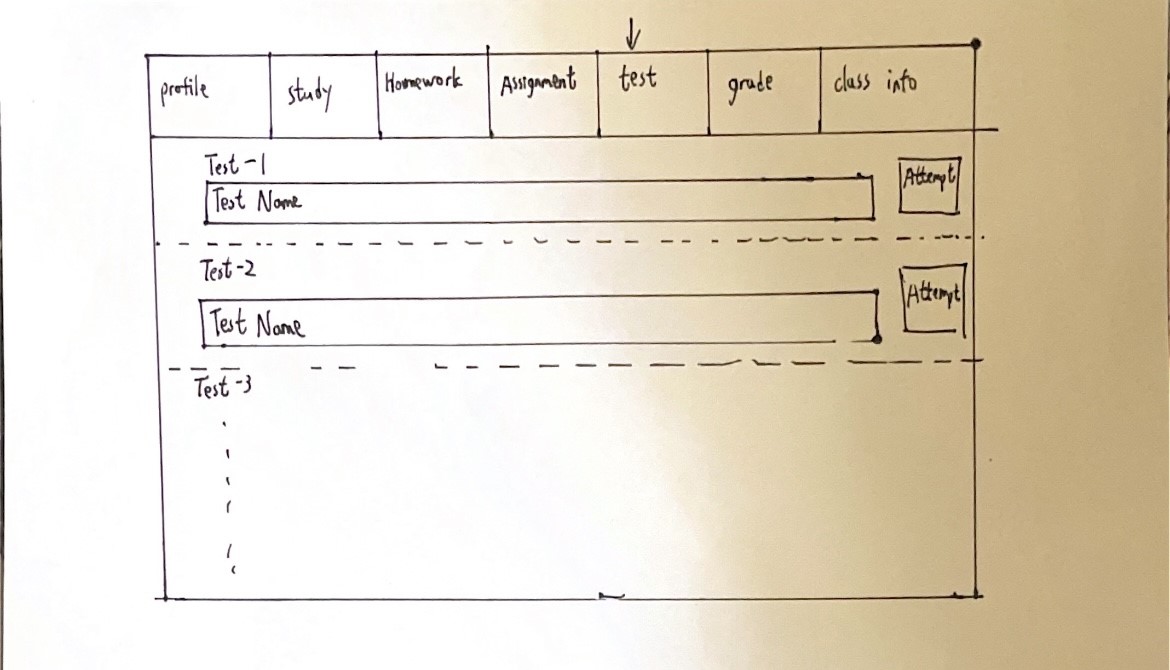 profile study Homework Assignment test grade class info
Test-1
Test Name Attempt
Test-2
Test Name Attempt
Test-3